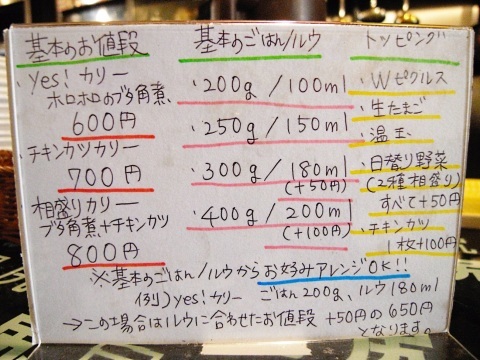 基本のお値段
・Yes!カリー
ホロホロのブタ角煮
600円
・チキンカツカリー
700円
・相盛りカリー
ブタ角煮+チキンカツ
800円
基本のごはん/ルウ
・200g/100ml
・250g/150ml
・300g/180ml
(+50円)
・400g/200ml
(+100円)
トッピング
・Wピクルス
・生たまご
・温玉
・日替り野菜
(2種相盛り)
すべて+50円
・チキンカツ
1枚+100円
※基本のごはん/ルウからお好みアレンジOK!!
例)yes!カリー ごはん200g、ルウ180ml
→この場合はルウに合わせたお値段 +50円の650円
となります。